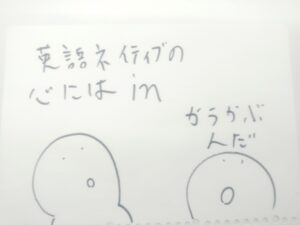 英語ネイティブの
心にはin
がうかぶ
んだ